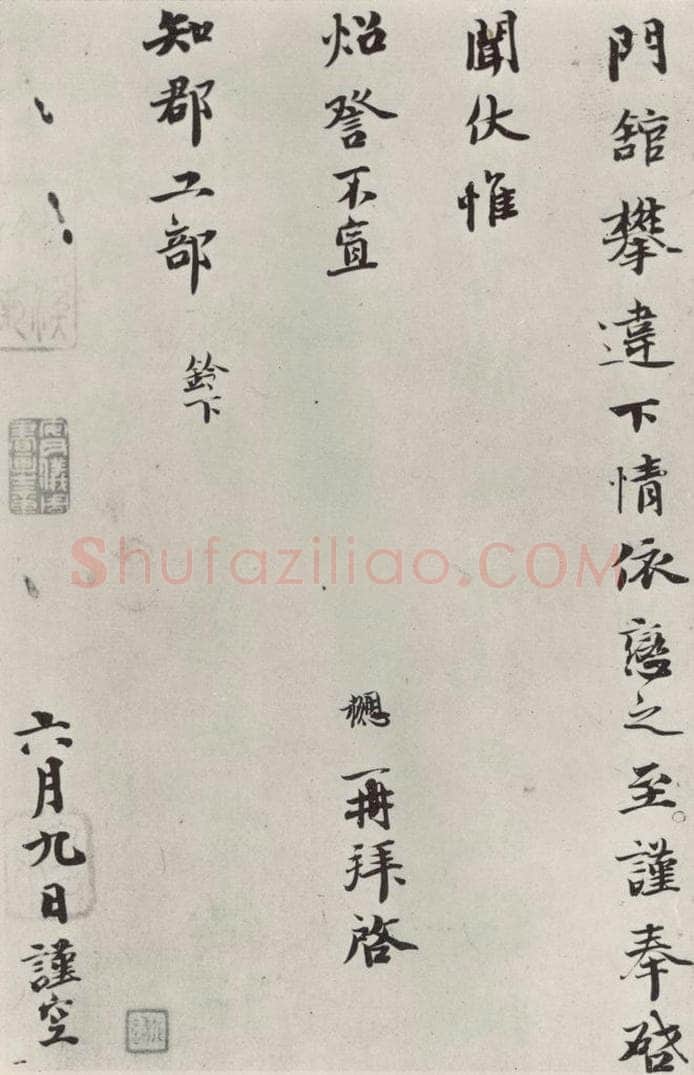 門舘攀違下情依戀之至謹奉啓
聞伏惟
炤詧不宣 再拜啓
知郡工部 鈴下
六月九日謹空
安儀周
書畫之章
Shufaziliao.COM